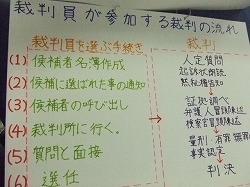 裁判員が参加する裁判の流れ
裁判員を選ぶ手続き
(1) 候補者名簿作成
(2) 候補に選ばれた事の通知
(3) 候補者の呼び出し
(4) 裁判所に行く。
(5) 質問と面接
(6) 選任
裁判
人定質問
起訴状朗読
黙秘権告知
証拠調べ
弁護人冒頭陳述
検察官冒頭陳述
量刑 有罪 無罪
事実認定
判決